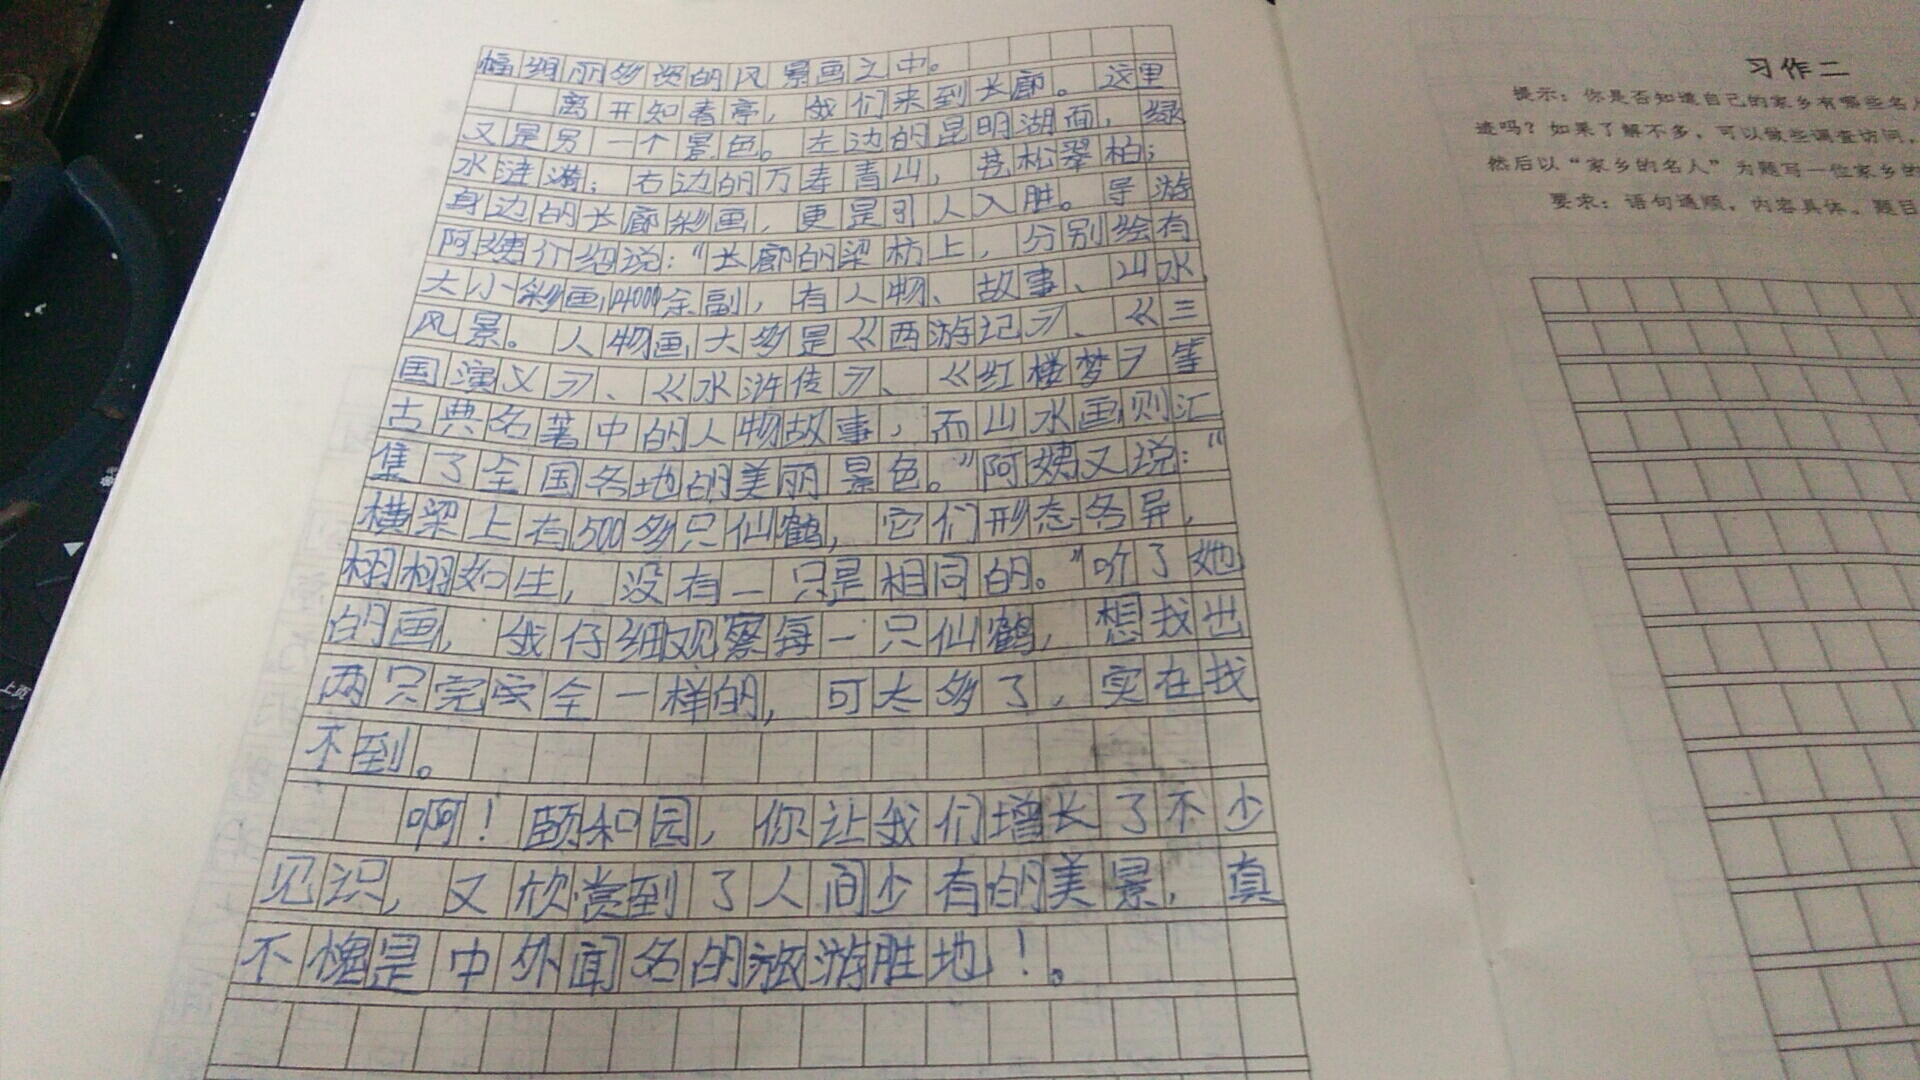 幅绚丽多姿的风景画之中。
离开知春亭，我们来到长廊。这里
又是另一个景色。左边的昆明湖面，绿
水涟漪；右边的万寿青山，苍松翠柏；
身边的长廊彩画，更是引人入胜。导游
阿姨介绍说：“长廊的梁枋上，分别绘有
大小彩画14000余副，有人物、故事、山水、
风景。人物画大多是《西游记》、《三
国演义》、《水浒传》、《红楼梦》等
古典名著中的人物故事，而山水画则汇
集了全国各地的美丽景色。”阿姨又说：“
横梁上有500多只仙鹤，它们形态各异，
栩栩如生，没有一只是相同的。”听了她
的画，我仔细观察每一只仙鹤，想找出
两只完完全一样的，可太多了，实在找
不到。
啊！颐和园，你让我们增长了不少
见识，又欣赏到了人间少有的美景，真
不愧是中外闻名的旅游胜地！。
习作二
提示：你是否知道自己的家乡有哪些名人
迹吗？如果了解不多，可以做些调查访问，
然后以“家乡的名人”为题写一位家乡的
要求：语句通顺，内容具体。题目
上页